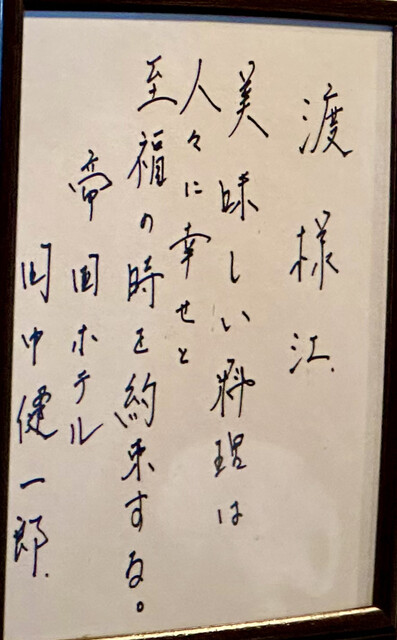 渡様江
美味しい料理は
人々に幸せと
至福の時を約束する。
帝国ホテル
田中健一郎